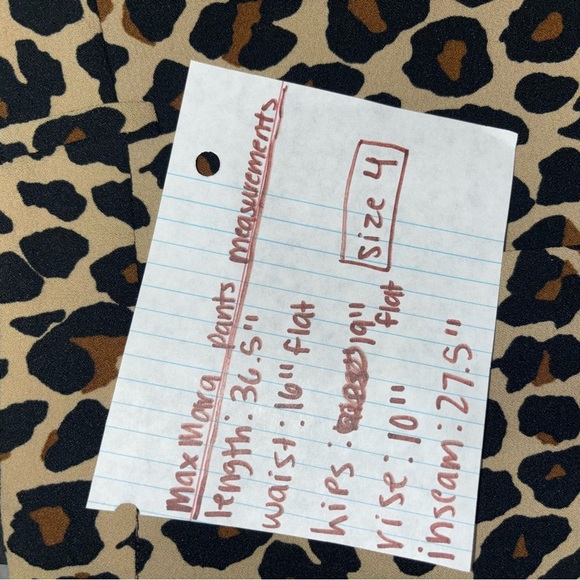 Max Mara pants measurements
length: 36.5"
waist: 16" flat
hips: 19" flat
rise: 10"
inseam: 27.5"
size 4